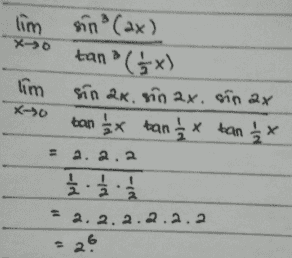 lim sin³(2x)
x→0 tan³(½x)
lim sin 2x. sin 2x. sin 2x
x→0 tan ½x tan ½x tan ½x
= 2. 2. 2
½ · ½ · ½
= 2. 2. 2. 2. 2. 2
= 2⁶.